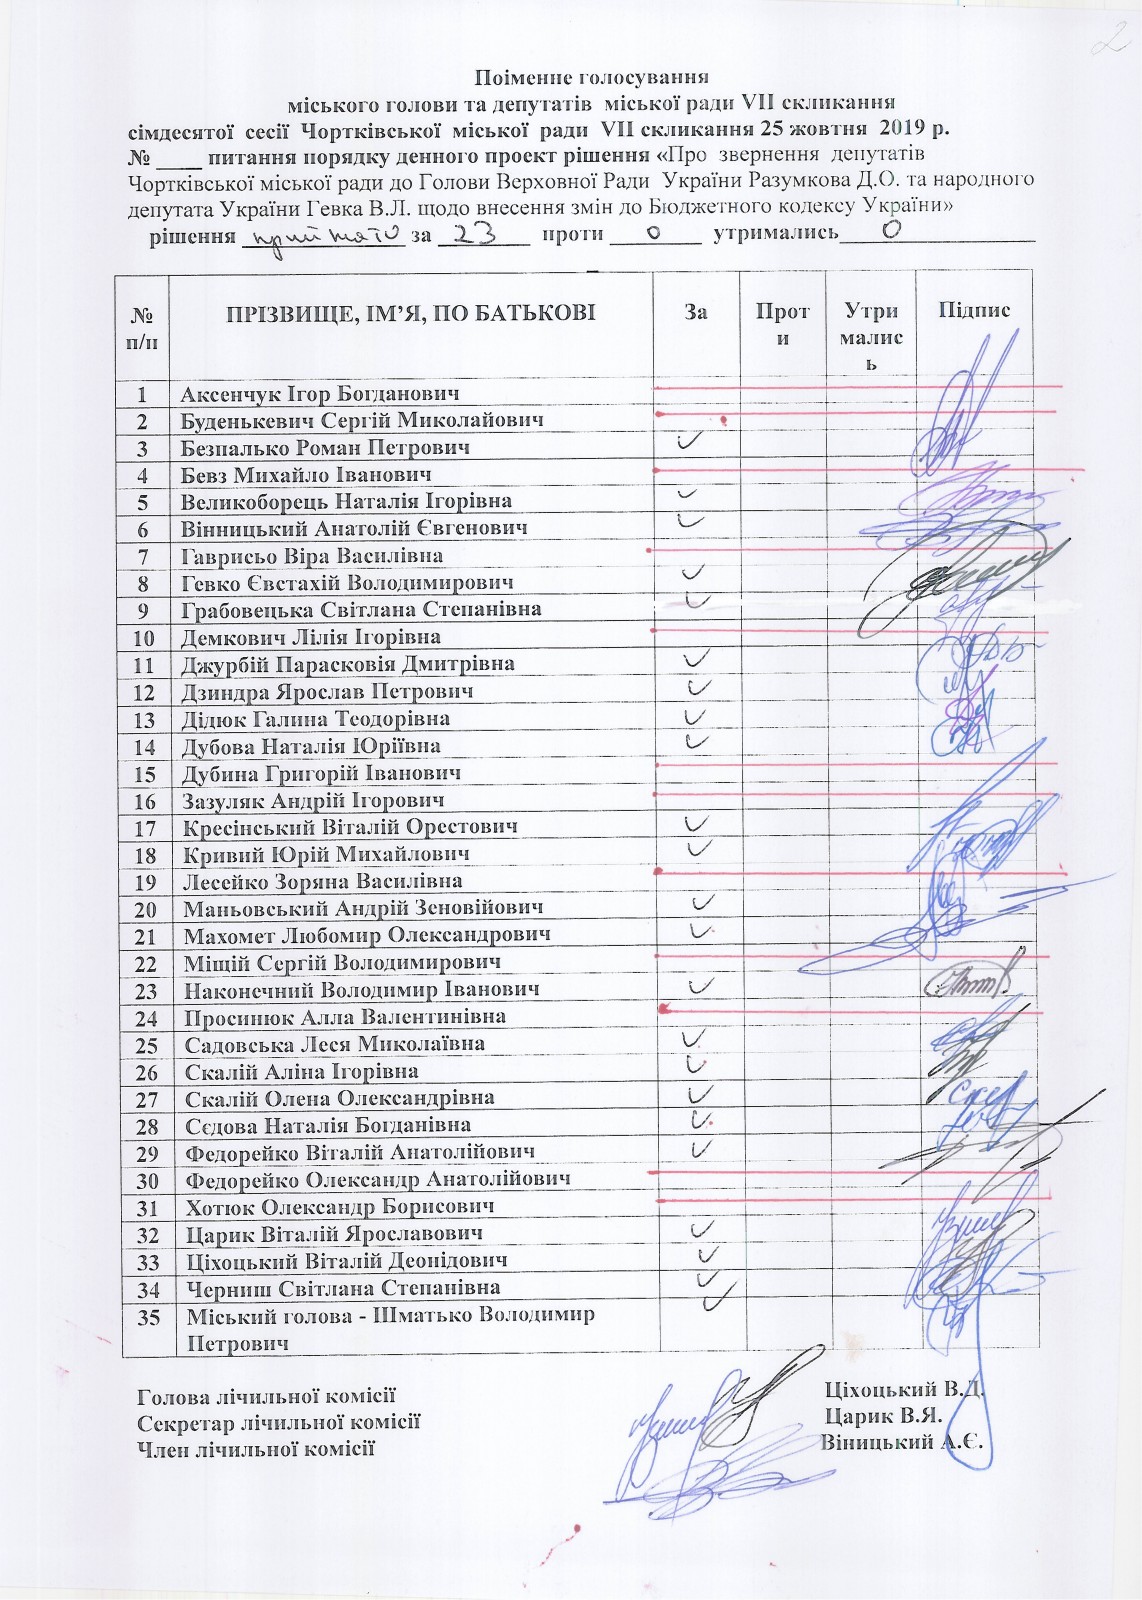 2
Поіменне голосування
міського голови та депутатів міської ради VII скликання
сімдесятої сесії Чортківської міської ради VII скликання 25 жовтня 2019 р.
№ ____ питання порядку денного проект рішення «Про звернення депутатів
Чортківської міської ради до Голови Верховної Ради України Разумкова Д.О. та народного
депутата України Гевка В.Л. щодо внесення змін до Бюджетного кодексу України»
рішення прийнято за 23 проти 0 утримались 0
№ п/п ПРІЗВИЩЕ, ІМ’Я, ПО БАТЬКОВІ За Проти Утримались Підпис
1 Аксенчук Ігор Богданович
2 Буденькевич Сергій Миколайович
3 Безпалько Роман Петрович ✓
4 Бевз Михайло Іванович
5 Великоборець Наталія Ігорівна ✓
6 Вінницький Анатолій Євгенович ✓
7 Гаврисьо Віра Василівна
8 Гевко Євстахій Володимирович ✓
9 Грабовецька Світлана Степанівна ✓
10 Демкович Лілія Ігорівна
11 Джурбій Парасковія Дмитрівна ✓
12 Дзиндра Ярослав Петрович ✓
13 Дідюк Галина Теодорівна ✓
14 Дубова Наталія Юріївна ✓
15 Дубина Григорій Іванович
16 Зазуляк Андрій Ігорович
17 Кресінський Віталій Орестович ✓
18 Кривий Юрій Михайлович ✓
19 Лесейко Зоряна Василівна
20 Маньовський Андрій Зеновійович ✓
21 Махомет Любомир Олександрович ✓
22 Міщій Сергій Володимирович
23 Наконечний Володимир Іванович ✓
24 Просинюк Алла Валентинівна
25 Садовська Леся Миколаївна ✓
26 Скалій Аліна Ігорівна ✓
27 Скалій Олена Олександрівна ✓
28 Сєдова Наталія Богданівна ✓
29 Федорейко Віталій Анатолійович ✓
30 Федорейко Олександр Анатолійович
31 Хотюк Олександр Борисович
32 Царик Віталій Ярославович ✓
33 Ціхоцький Віталій Деонідович ✓
34 Черниш Світлана Степанівна ✓
35 Міський голова - Шматько Володимир ✓
Петрович
Голова лічильної комісії Ціхоцький В.Д.
Секретар лічильної комісії Царик В.Я.
Член лічильної комісії Віницький А.Є.